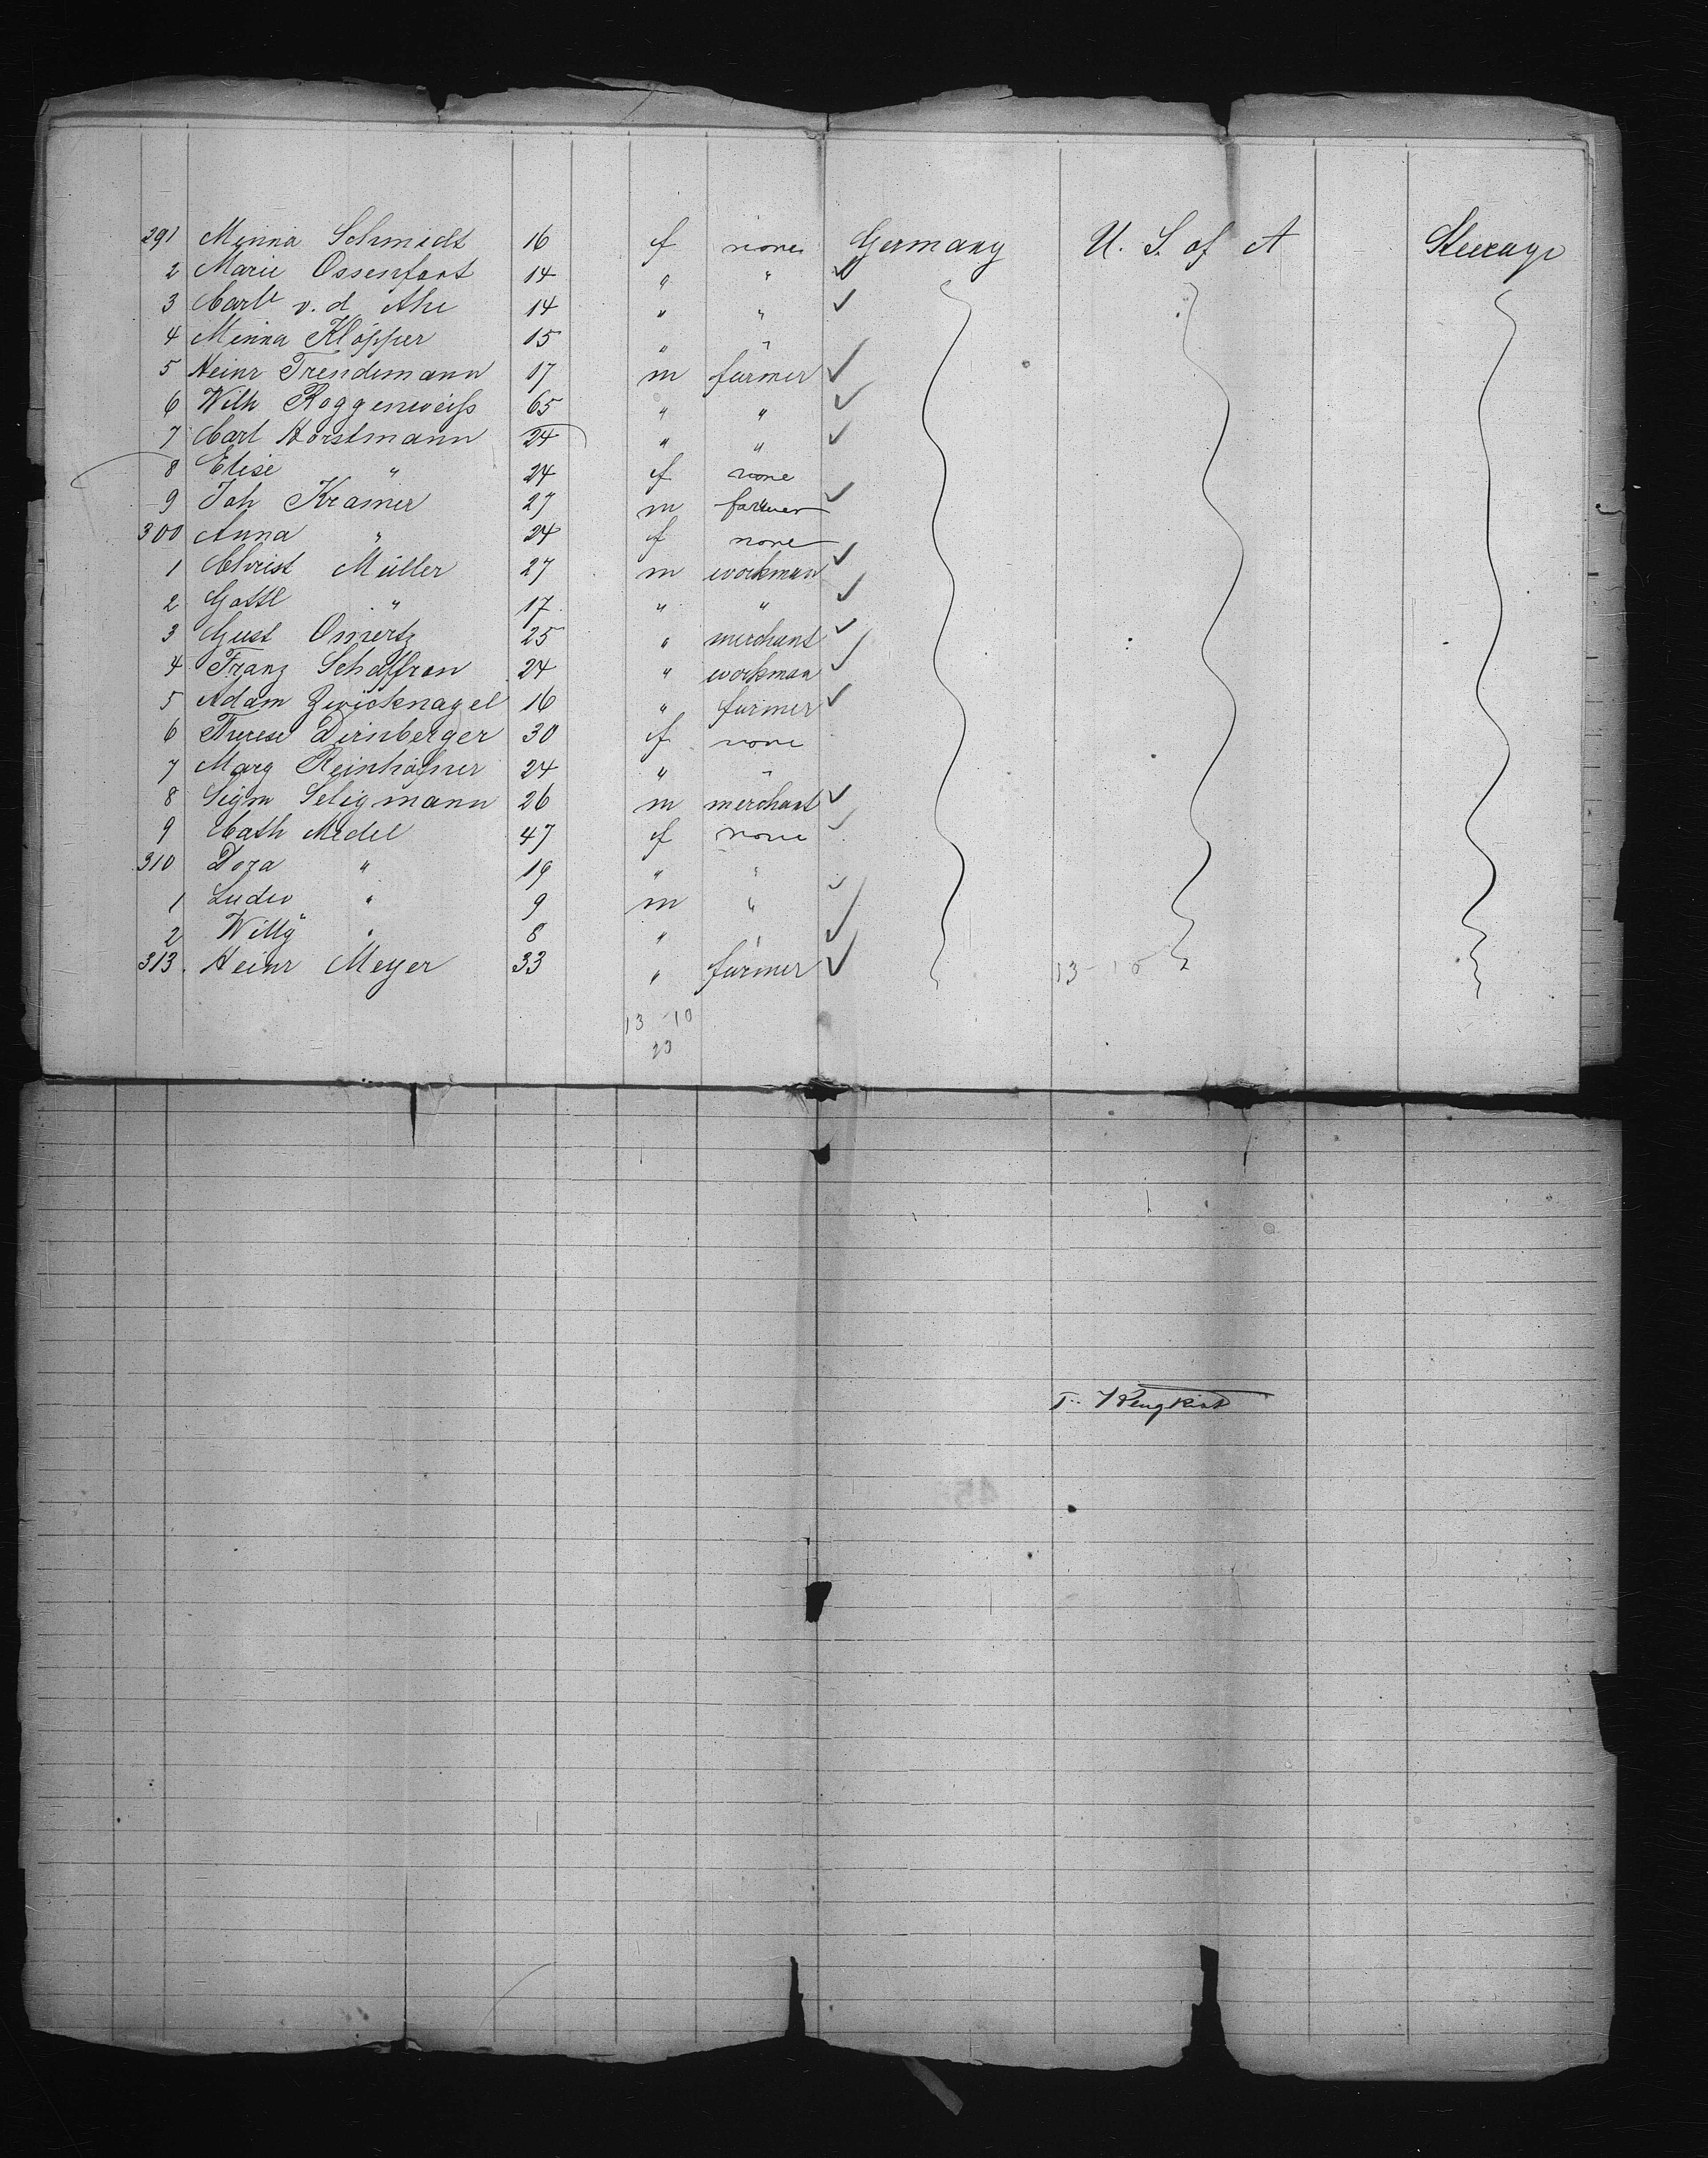 291 Minna Schmidt 16 f none Germany U. S. of A Steerage
2 Marie Ossenfort 14 " "
3 Carle v. d. Ahe 14 " "
4 Minna Klöpper 15 " "
5 Heinr Trendemann 17 m farmer
6 Wilh Roggenweiß 65 " "
7 Carl Horstmann 24 " "
8 Elise " 24 f none
9 Joh Kramer 27 m farmer
300 Anna " 24 f none
1 Christ Müller 27 m workman
2 Gottl " 17 " "
3 Gust Omertz 25 " merchant
4 Franz Schaffran 24 " workman
5 Adam Zwicknagel 16 " farmer
6 Therese Dirnberger 30 f none
7 Marg Reinhofner 24 " "
8 Sigm Seligmann 26 m merchant
9 Cath Medel 47 f none
310 Dora " 19 " "
1 Ludw " 9 m "
2 Willy " 8 " "
313. Heinr Meyer 33 " farmer 13-10
13-10
23